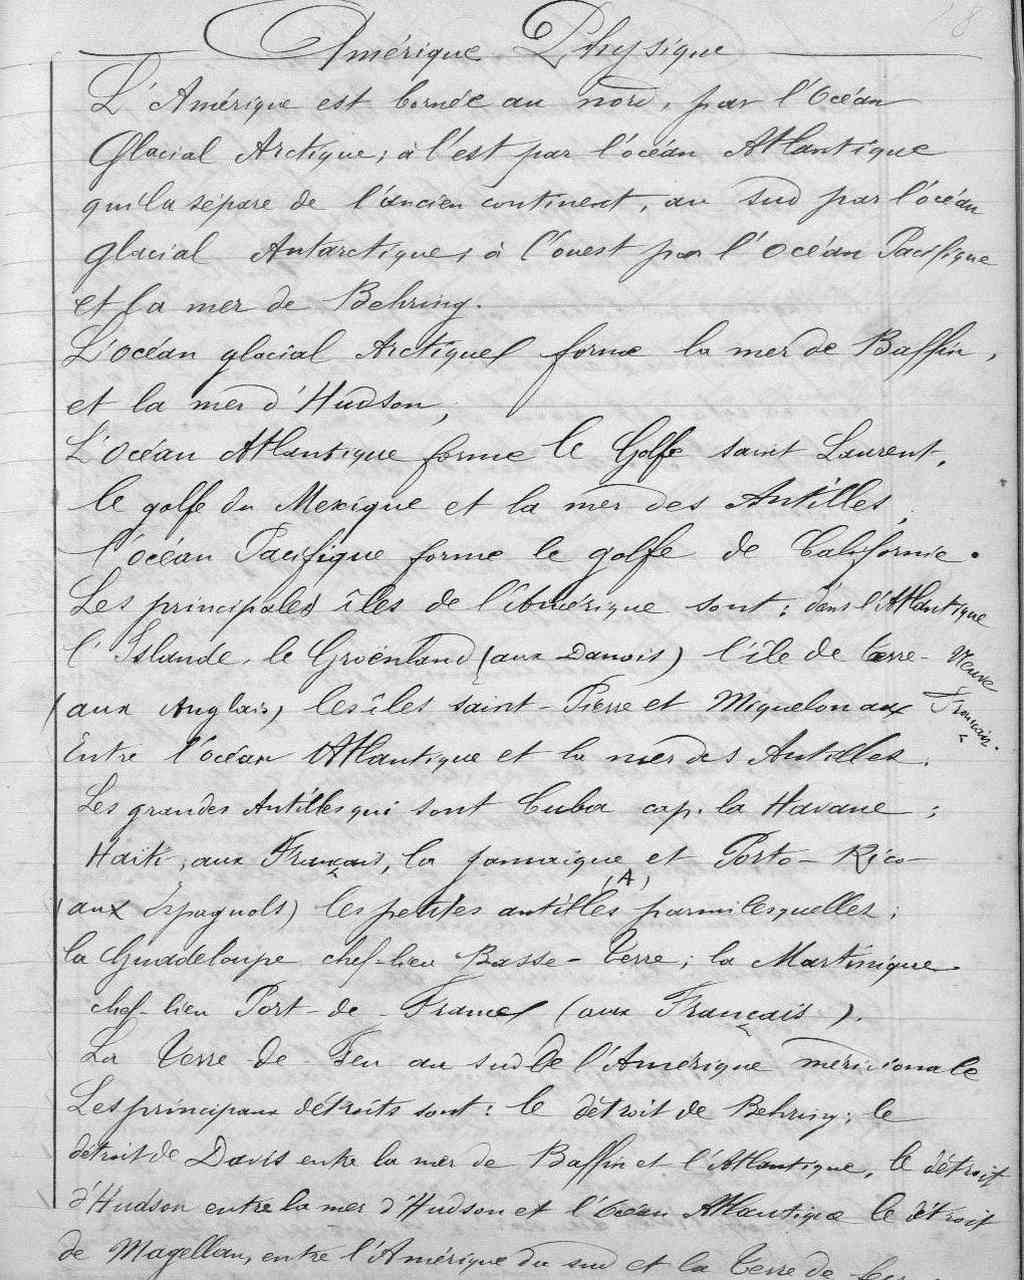 8
Amérique Physique
L'Amérique est bornée au nord, par l'Océan
Glacial Arctique; à l'est par l'océan Atlantique
qui la sépare de l'ancien continent, au sud par l'océan
glacial Antarctique, à l'ouest par l'Océan Pacifique
et la mer de Behring.
L'océan glacial Arctique forme la mer de Baffin,
et la mer d'Hudson,
L'Océan Atlantique forme le Golfe saint Laurent,
le golfe du Mexique et la mer des Antilles,
l'océan Pacifique forme le golfe de Californie.
Les principales îles de l'Amérique sont: dans l'Atlantique
l'Islande, le Groënland (aux Danois) l'île de Terre-Neuve
(aux Anglais) les îles saint-Pierre et Miquelon aux Français.
Entre l'océan Atlantique et la mer des Antilles.
Les grandes Antilles qui sont Cuba cap. la Havane;
Haïti, aux Français, la Jamaïque et Porto-Rico
(aux Espagnols) les petites antilles (A) parmi lesquelles;
la Guadeloupe chef-lieu Basse-Terre; la Martinique
chef-lieu Port-de-France (aux Français).
La Terre de Feu au sud de l'Amérique méridionale
Les principaux détroits sont: le détroit de Behring; le
détroit de Davis entre la mer de Baffin et l'Atlantique, le détroit
d'Hudson entre la mer d'Hudson et l'Océan Atlantique le détroit
de Magellan, entre l'Amérique du sud et la Terre de Feu